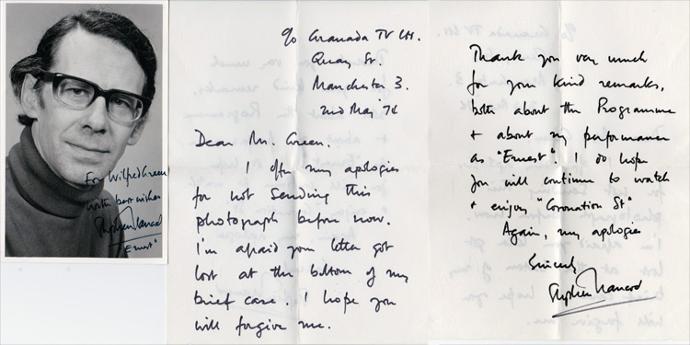 For Wilfred Green
with best wishes
Stephen Hancock
"Ernest"
c/o Granada TV Ltd.
Quay St.
Manchester 3.
2nd May '74
Dear Mr. Green.
I offer my apologies
for not sending this
photograph before now.
I'm afraid your letter got
lost at the bottom of my
brief case. I hope you
will forgive me.
Thank you very much
for your kind remarks,
both about the Programme
+ about my performance
as "Ernest". I do hope
you will continue to watch
+ enjoy "Coronation St"
Again, my apologies
Sincerely
Stephen Hancock